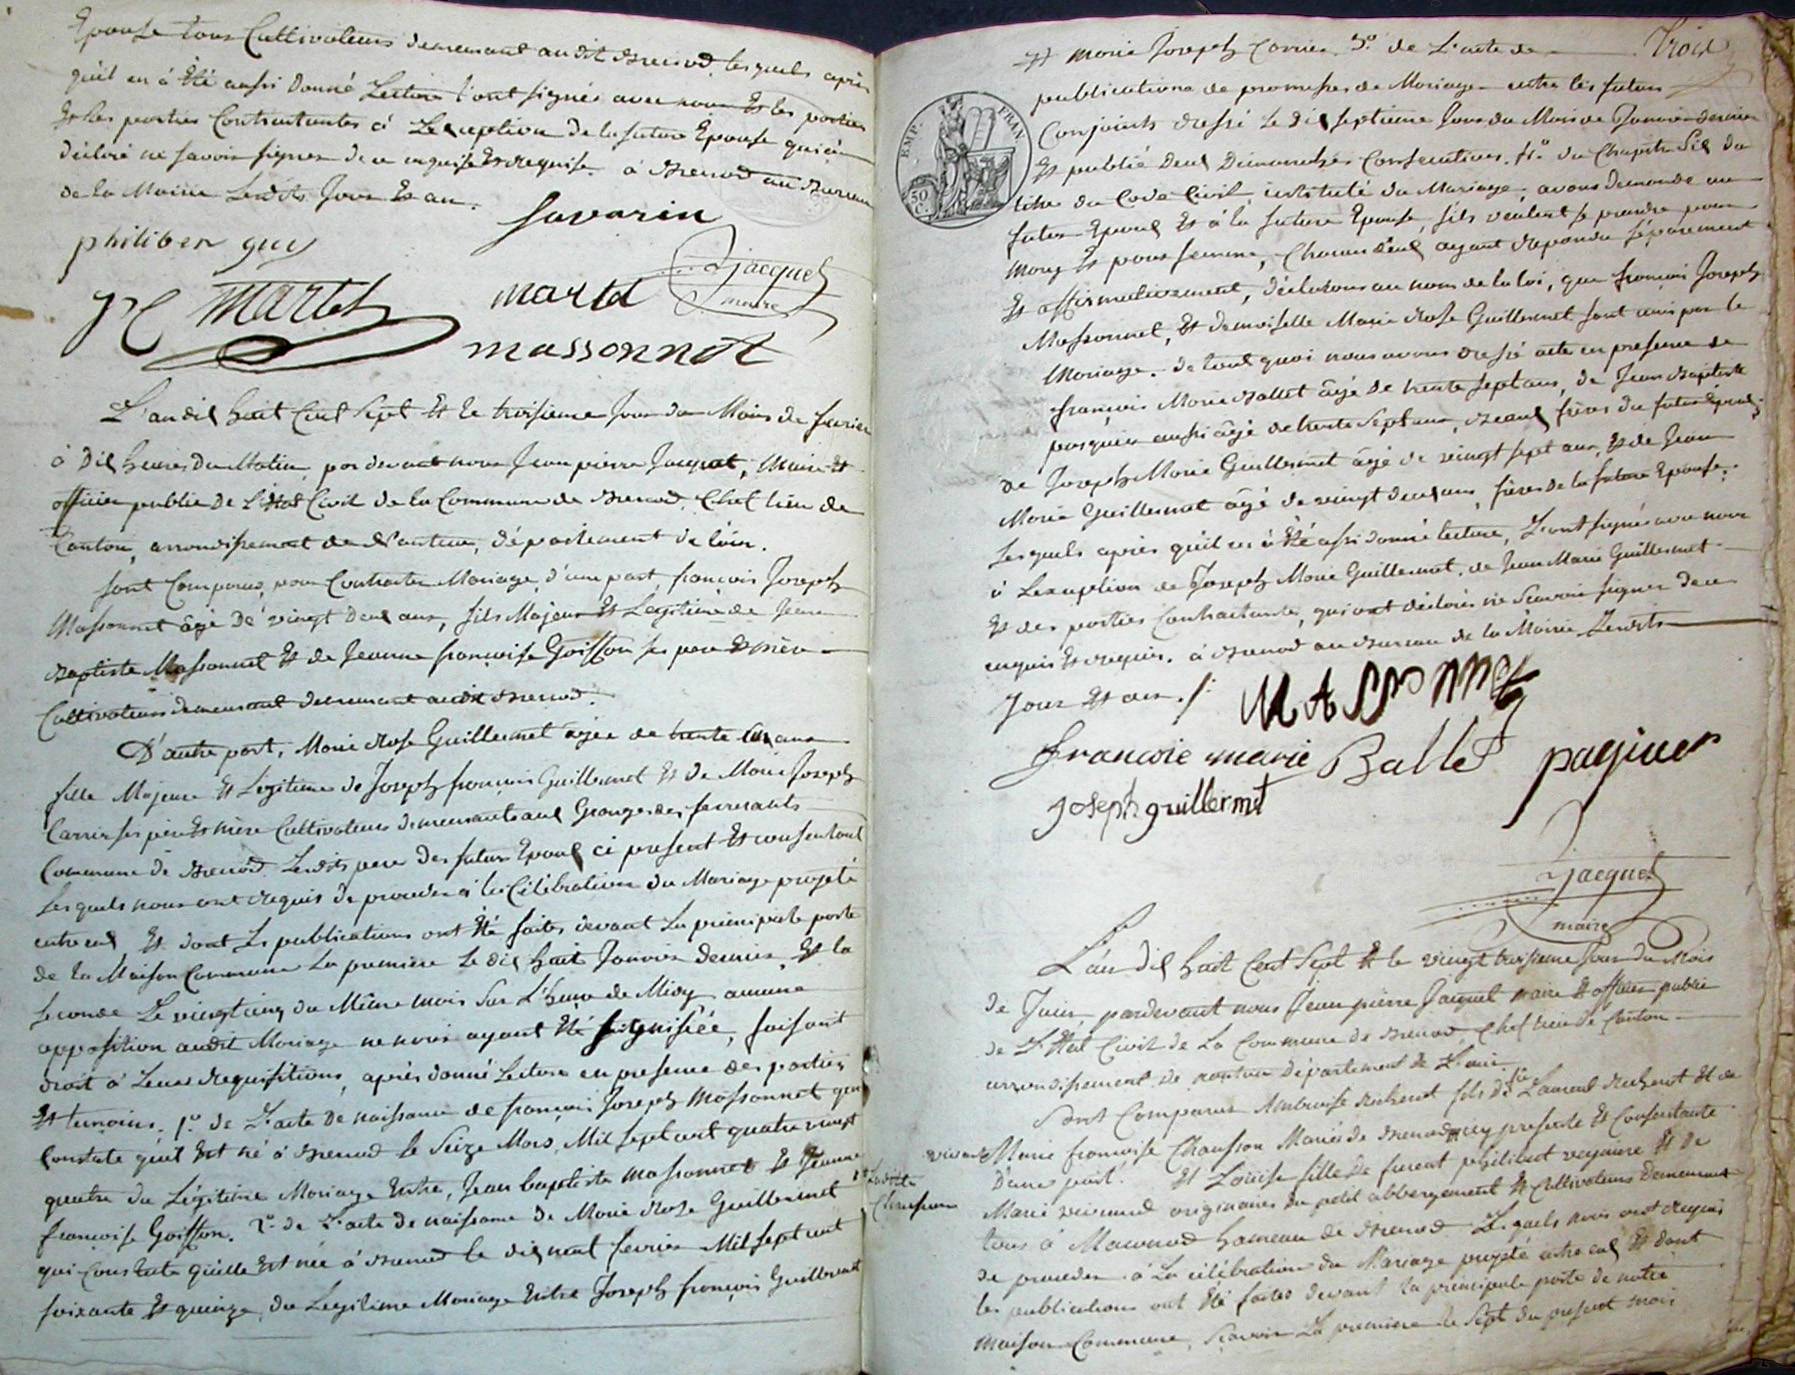 Epouse tous Cultivateurs demeurant audit Brenod, lesquels après
qu'il en à Eté aussi donné Lecture l'ont signée avec nous Et les parties
Et les parties Contractantes à L'exception de la future Epouse qui à
déclaré ne savoir signer de ce enquise Et requise. à Brenod au Bureau
de la Mairie Lesdits Jour Et an.
savarin
philiber guy
Jacquet
maire
martel
marta
massonnot
L'an dil huit Cent Sept Et le troisieme Jour du Mois de fevrier
à Dil heures du Matin, par devant nous Jean pierre Jacquet, Maire Et
officier public de L'Etat Civil de la Commune de Brenod, Chef lieu de
Canton, arrondissement de Nantua, département de l'ain.
sont Comparus, pour Contracter Mariage, d'une part, françois Joseph
Massonnet âgé de vingt deul ans, fils Majeur Et Legitime de Jean
Baptiste Massonnet Et de Jeanne françoise Goiffon ses pere Et mère
Cultivateurs demeurant audit Brenod.
D'autre part, Marie Rose Guillermet agée de trente un ans
fille Majeure Et Légitime de Joseph françois Guillermet Et de Marie Joseph
Carrier ses père Et mère Cultivateurs demeurants aul Granges des ferrants
Commune de Brenod. Lesdits pere des futurs Epoul ci present Et consentant
Lesquels nous ont requis de proceder à la Célébration du Mariage projeté
entre eul Et dont Les publications ont Eté faites devant La principale porte
de La Maison Commune La premiere Le dil huit Janvier dernier, Et la
seconde Le vingt cinq du Même mois Sur L'heure de Midy aucune
opposition audit Mariage ne nous ayant Eté signifiée, faisant
droit à Leurs requisitions, après donné Lecture en presence des parties
Et temoins. 1.o de L'acte de naissance de françois Joseph Massonnet qui
Constate qu'il Est né à Brenod le Seize Mars Mil sept cent quatre vingt
quatre du Légitime Mariage Entre, Jean baptiste Massonnet Et Jeanne
françoise Goiffon. 2.o de L'acte de naissance de Marie Rose Guillermet
qui Constate qu'elle Est née à Brenod le dil neuf fevrier Mil sept cent
soixante Et quinze, du Legitime Mariage Entre Joseph françois Guillermet
Et marie Joseph Carrier. 3.o de L'acte de Trois
publications de promesses de Mariage entre les futurs
Conjoints dressé Le dil septieme Jour du Mois de Janvier dernier
Et publié deul Dimanches Consecutives. 4.o du Chapitre Sil du
titre du Code Civil, intitulé du Mariage, avons demandé au
futur Epoul Et à la future Epouse, s'ils veulent se prendre pour
mary Et pour femme, Chacun d'eul ayant repondu séparement
Et affirmativement, déclarons au nom de la loi, que françois Joseph
Massonnet, Et demoiselle Marie Rose Guillermet sont unis par le
Mariage. de tout quoi nous avons dressé acte en presence de
françois Marie Ballet âgé de trente sept ans, de Jean Baptiste
pasquier aussi âgé de trente sept ans, Beaul frères du futur Epoul;
de Joseph Marie Guillermet âgé de vingt sept ans, Et de Jean
Marie Guillermet âgé de vingt deul ans, frères de la future Epouse.
Lesquels après qu'il en à Eté aussi donné lecture, L'ont signés avec nous
à L'exception de Joseph Marie Guillermet, de Jean Marie Guillermet
Et des parties Contractantes, qui ont déclarés ne Scavoir signer de ce
enquis Et requis. à Brenod au Bureau de la Mairie Lesdits
Jour Et an.
MASSONNET
francoie marie Ballet paquier
joseph guillermet
Jacquet
maire
EMP. FRAN
50 C
L'an dil huit Cent Sept Et le vingt troisieme Jour du Mois
de Juin pardevant nous Jean pierre Jacquet maire Et officier public
de L'Etat Civil de La Commune de Brenod, Chef lieu de Canton
arrondissement de nantua département de L'ain.
Sont Comparus Ambroise Richerot fils de Laurent Richerot Et de
vivant
Marie francoise Chanson Mariés de Brenod icy presente Et Consentante
Ladite
Chanson
d'une part. Et Louise fille de furent philibert veyriere Et de
Marie originaires du petit abbergement Et Cultivateurs demeurant
tous à Maconod hameau de Brenod. Lesquels nous ont requis
de proceder à La célébration du Mariage projeté entre eul Et dont
les publications ont Eté faites devant La principale porte de notre
maison Commune, Scavoir La premiere le Sept du present mois